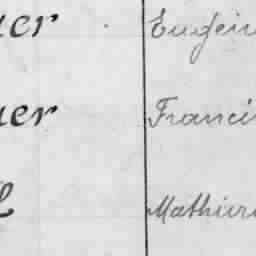 uer Eugèn
uer Franci
l Mathieu